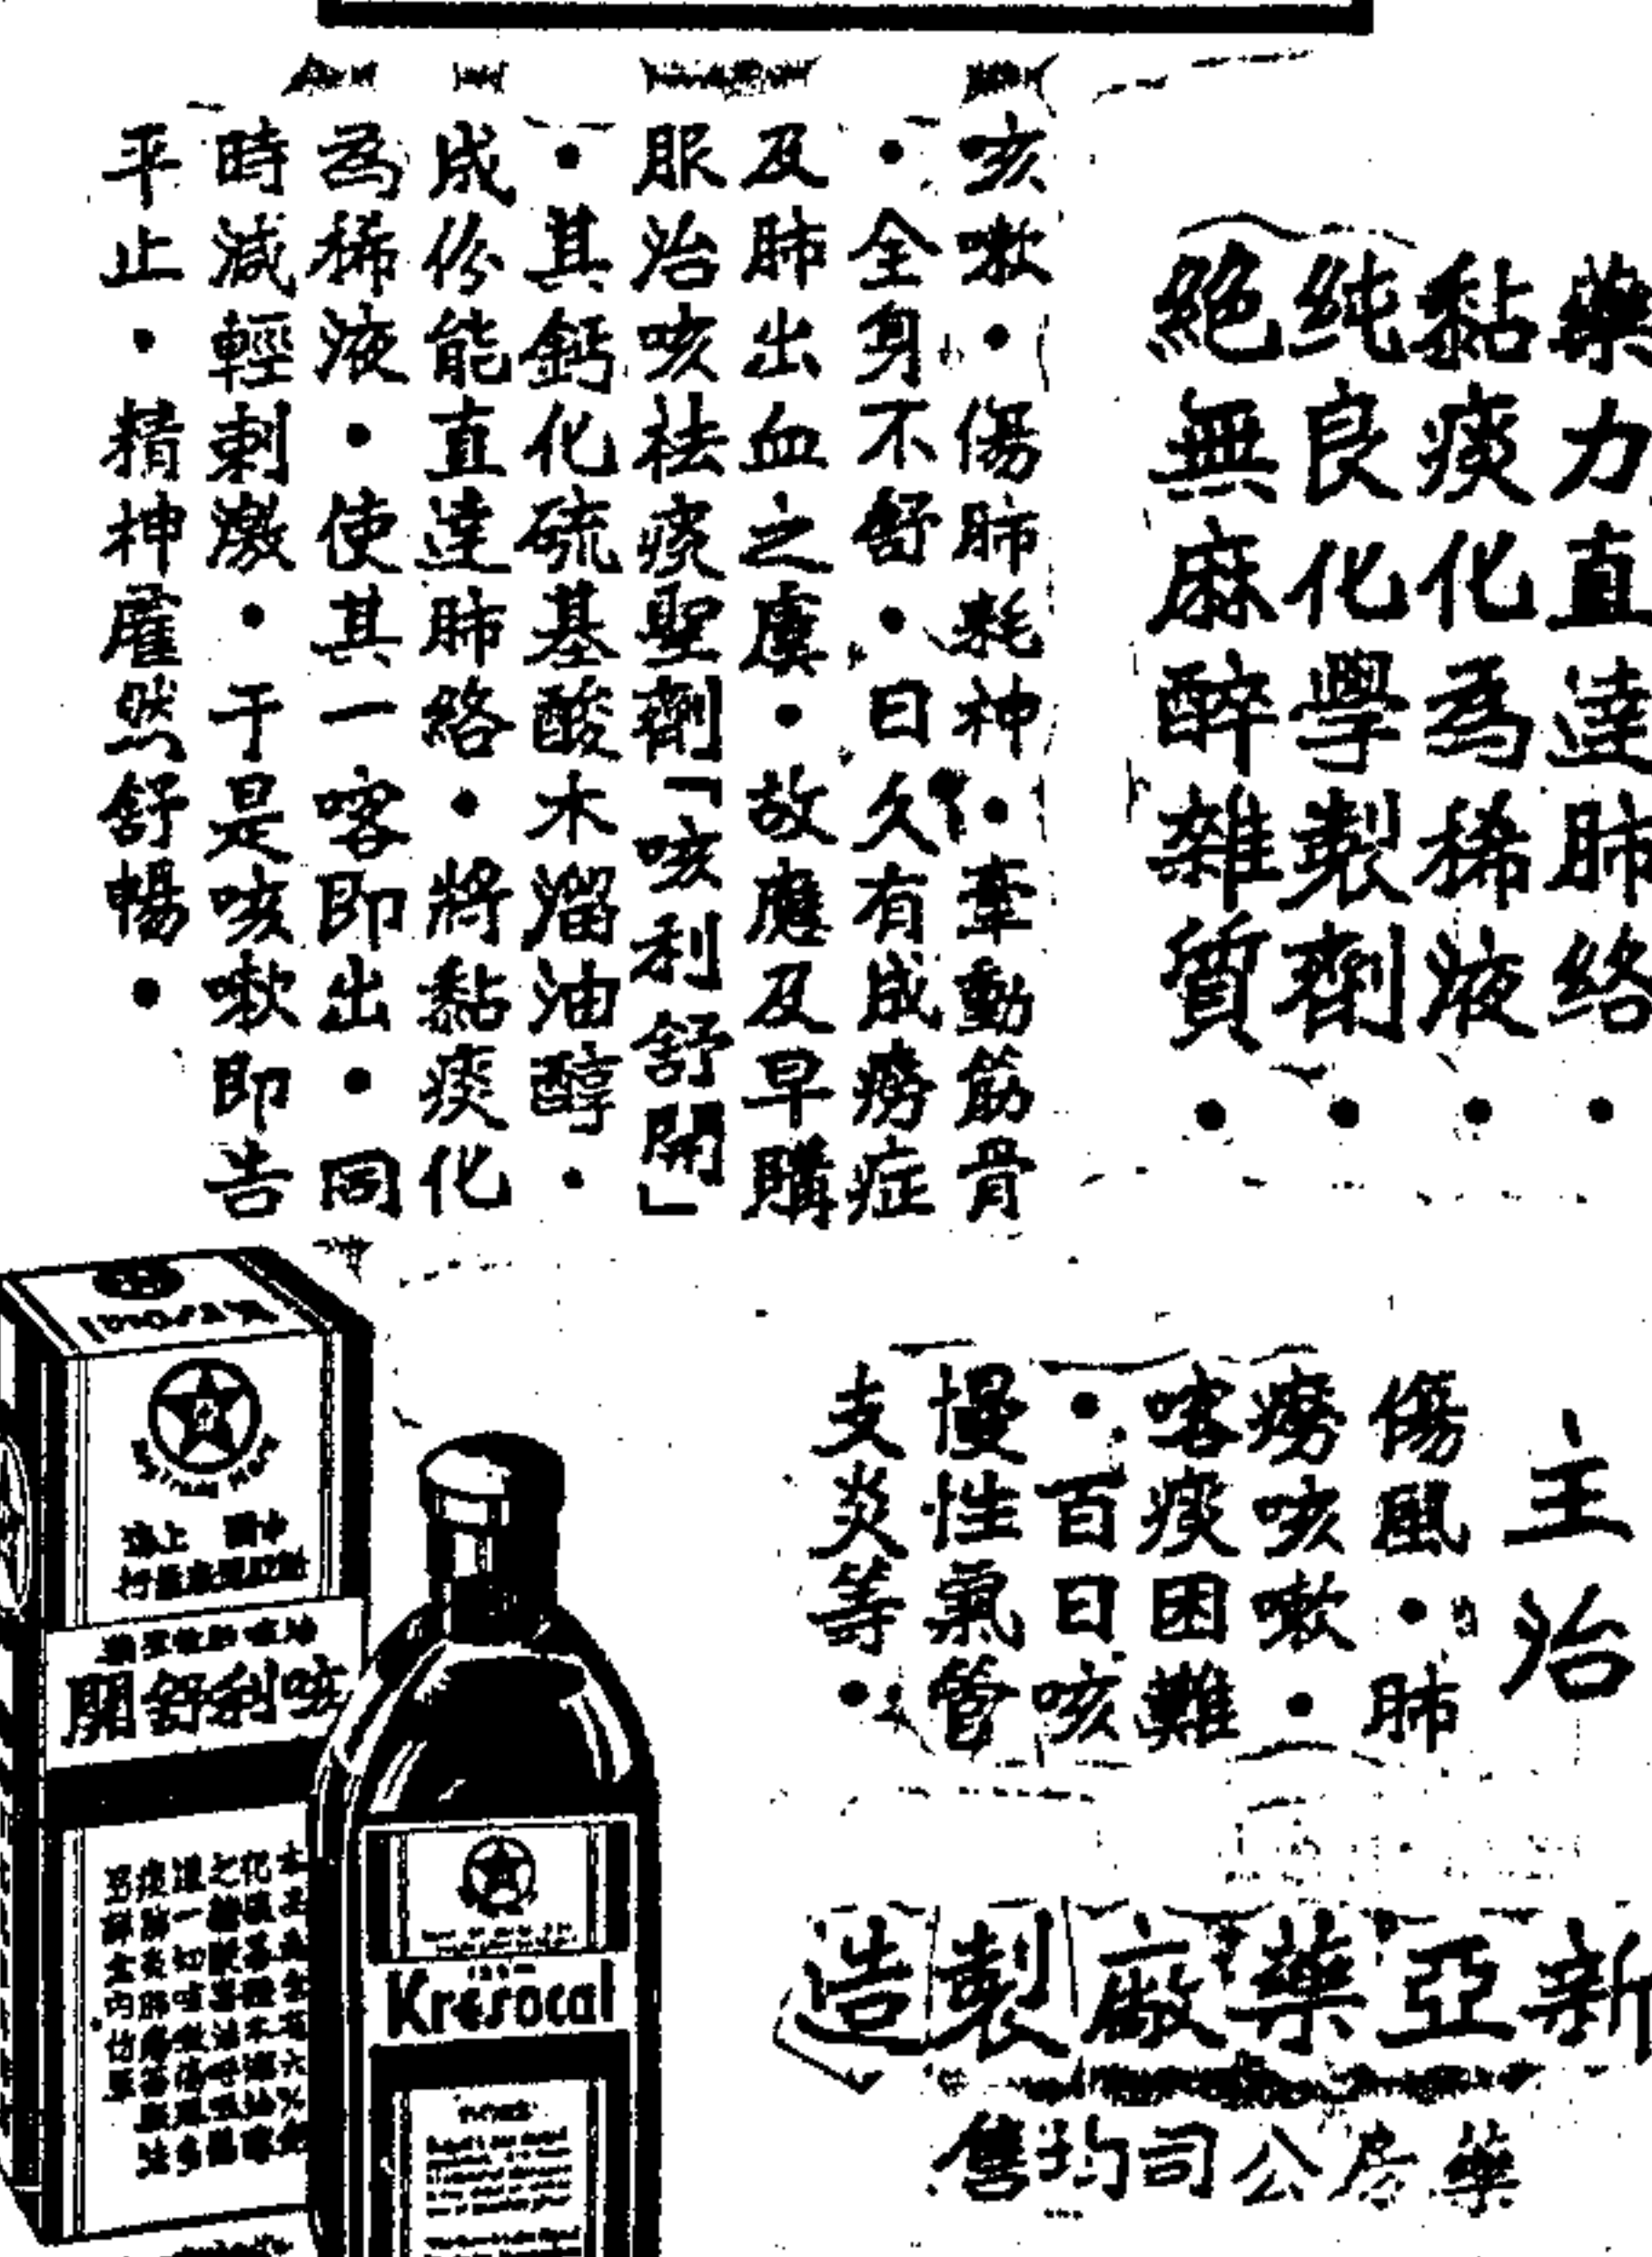 藥力直達肺絡•
黏痰化為稀液•
純良化學製劑•
絕無麻醉雜質•
咳嗽•傷肺耗神•牽動筋骨
•全身不舒•日久有成癆症
及肺出血之虞•故應及早購
服治咳祛痰聖劑「咳利舒開」
•其鈣化硫基酸木溜油醇•
成份能直達肺絡•將黏痰化
為稀液•使其一喀即出•同
時減輕刺激•于是咳嗽即告
平止•精神霍然舒暢•
主治
傷風•肺
癆咳嗽•
喀痰困難
•百日咳
慢性氣管
支炎等•
新亞藥廠製造
藥房公司均售
咳利舒開
Kresocal